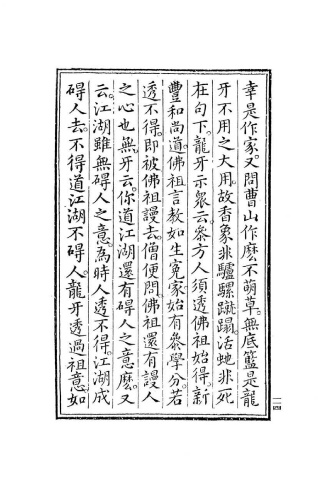 幸是作家。又問曹山作麼不萌草。無底籃是龍
牙不用之大用。故香象非驢騾蹴蹋。活虵非死
在句下。龍牙示衆云。叅方人須透佛祖始得。新
豐和尚道。佛祖言教如生寃家。始有叅學分。若
透不得。即被佛祖謾去。僧便問。佛祖還有謾人
之心也無。牙云。你道江湖還有碍人之意麽。又
云。江湖雖無碍人之意。為時人透不得。江湖成
碍人去。不得道江湖不碍人。龍牙透過祖意。如